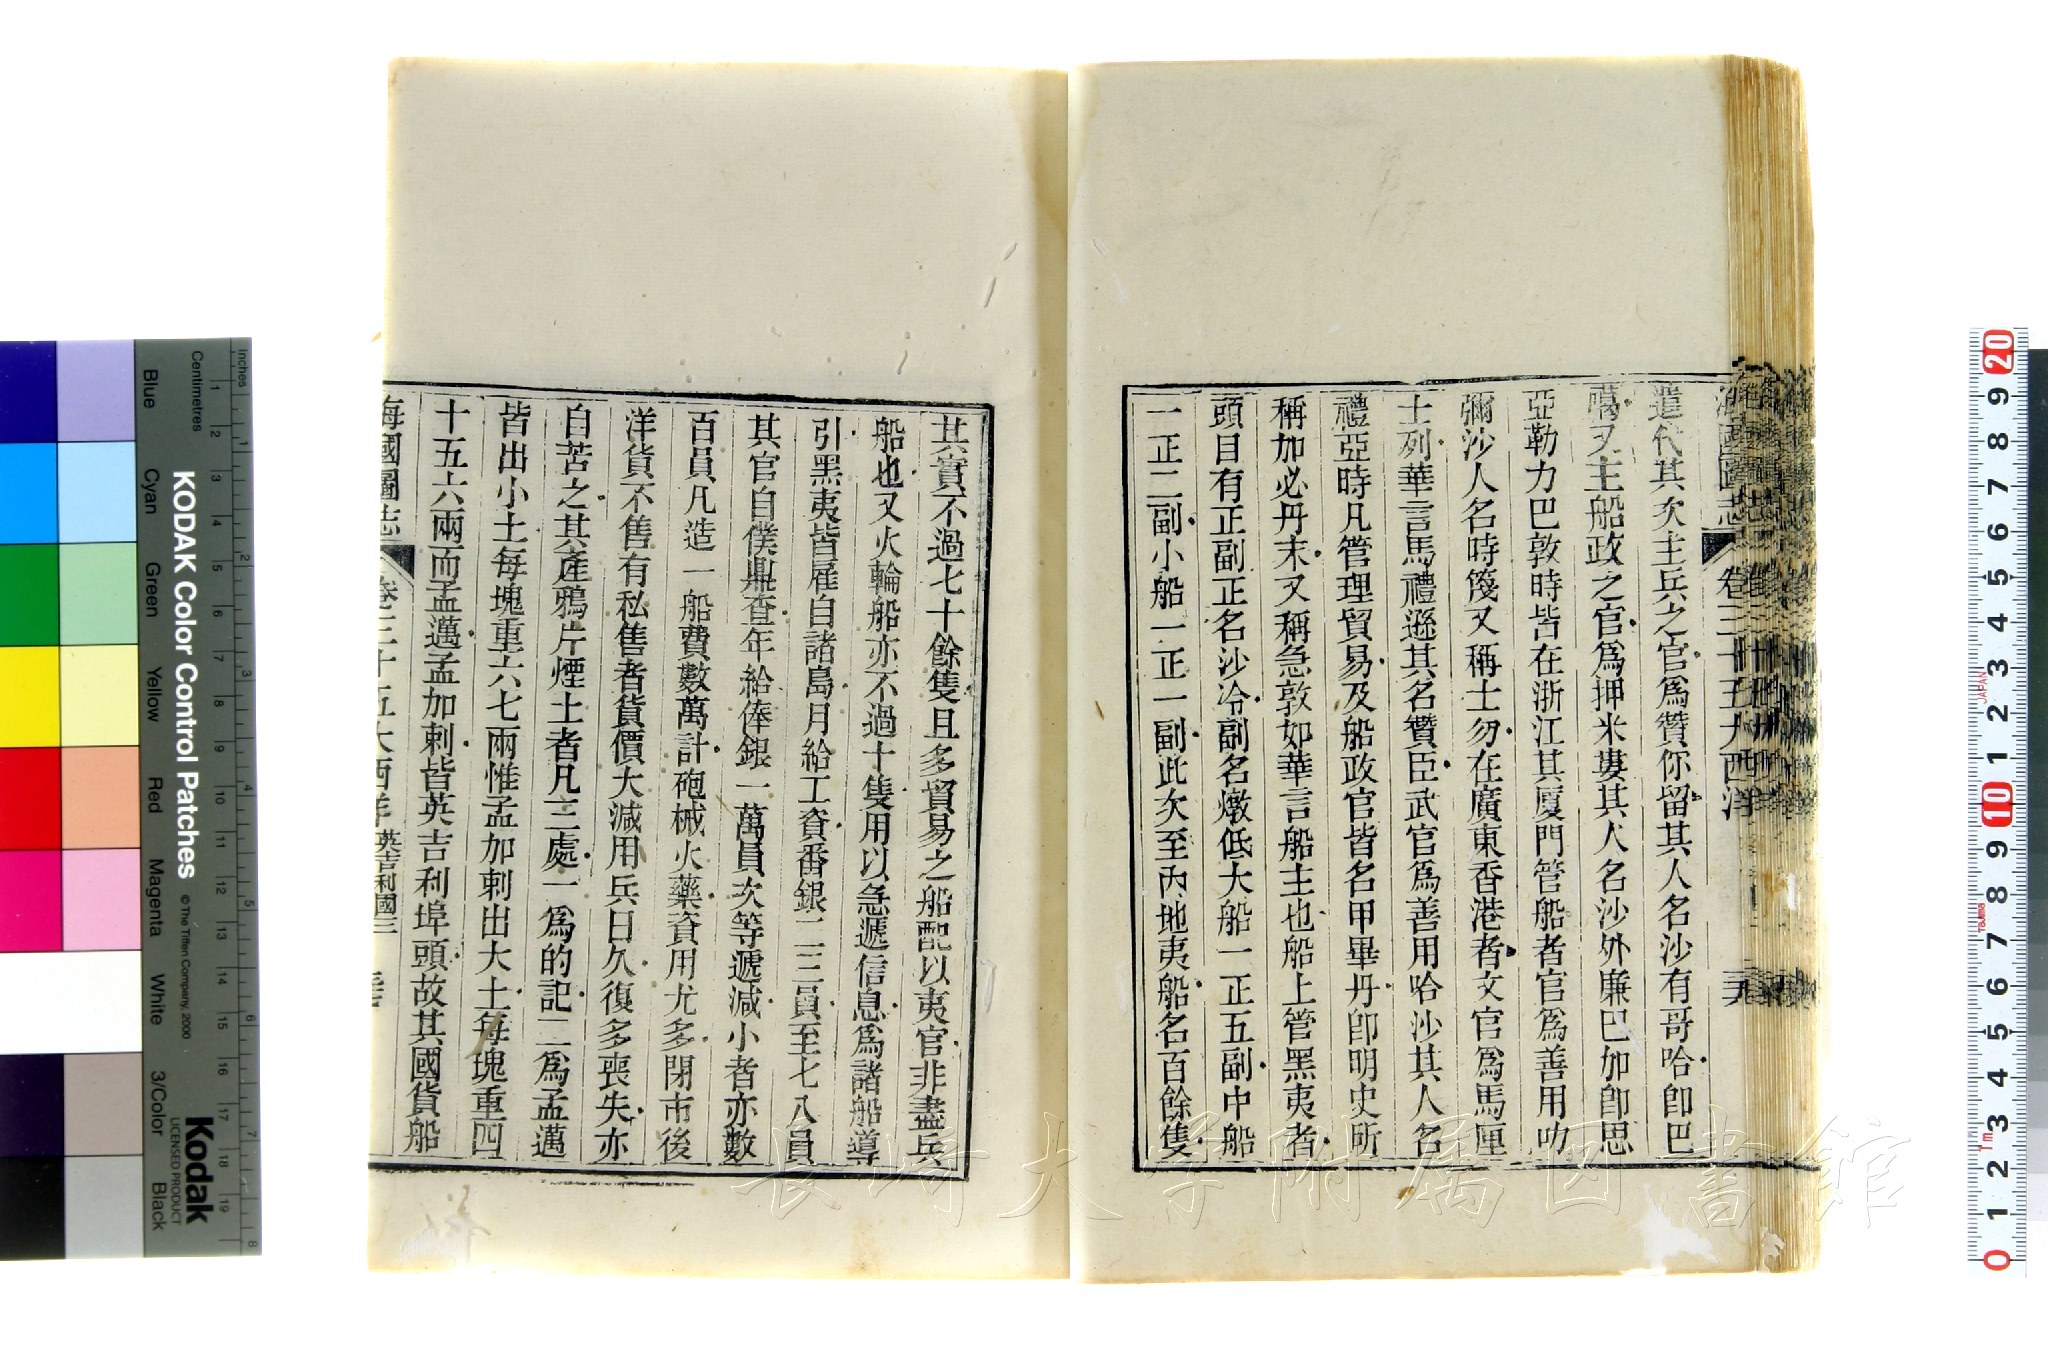 海國圖志 卷三十五大西洋 三九
遣代其次主兵之官爲贊你留其人名沙有哥哈卽巴
噶又主船政之官爲押米婁其人名沙外廉巴加卽思
亞勒力巴敦時皆在浙江其廈門管船者官爲善用叻
彌沙人名時篾又稱士勿在廣東香港者文官爲馬厘
士列華言馬禮遜其名贊臣武官爲善用哈沙其人名
禮亞時凡管理貿易及船政官皆名甲畢丹卽明史所
稱加必丹末又稱急敦如華言船主也船上管黑夷者
頭目有正副正名沙冷副名燉低大船一正五副中船
一正二副小船一正一副此次至內地夷船名百餘隻
其實不過七十餘隻且多貿易之船配以夷官非盡兵
船也又火輪船亦不過十隻用以急遞信息爲諸船導
引黑夷皆雇自諸島月給工資番銀二三員至七八員
其官自僕鼎查年給俸銀一萬員次等遞減小者亦數
百員凡造一船費數萬計砲械火藥資用尤多閉市後
洋貨不售有私售者貨價大減用兵日久復多喪失亦
自苦之其產鴉片煙土者凡三處一爲的記二爲孟邁
皆出小土每塊重六七兩惟孟加剌出大土每塊重四
十五六兩而孟邁孟加剌皆英吉利埠頭故其國貨船
海國圖志 卷三十五大西洋 英吉利國三
KODAK Color Control Patches © The Tiffen Company, 2000
Kodak
LICENSED PRODUCT
Inches
Centimetres
Blue Cyan Green Yellow Red Magenta White 3/Color Black
長崎大学附属図書館